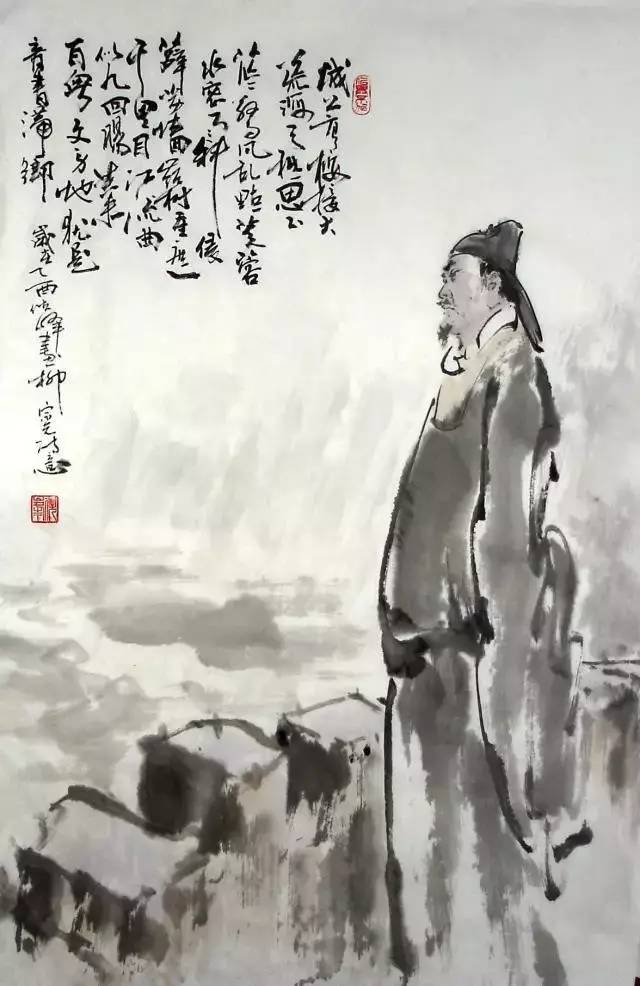 城上高楼接大
荒海天愁思正
茫茫惊风乱飐芙蓉
水密雨斜侵
薜荔墙岭树重遮
千里目江流曲
似九回肠共来
百粤文身地犹是
音書滞鄉
歲在乙酉 峰畫柳宗元诗意